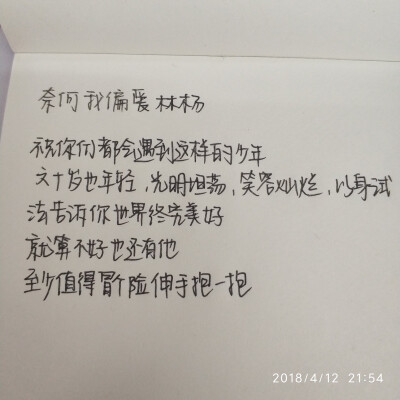 奈何我偏爱林杨
祝你们都会遇到这样的少年
六十岁也年轻，光明坦荡，笑容灿烂，以身试
法告诉你世界终究美好
就算不好也还有他
至少值得冒个险伸手抱一抱
2018/4/12 21:54